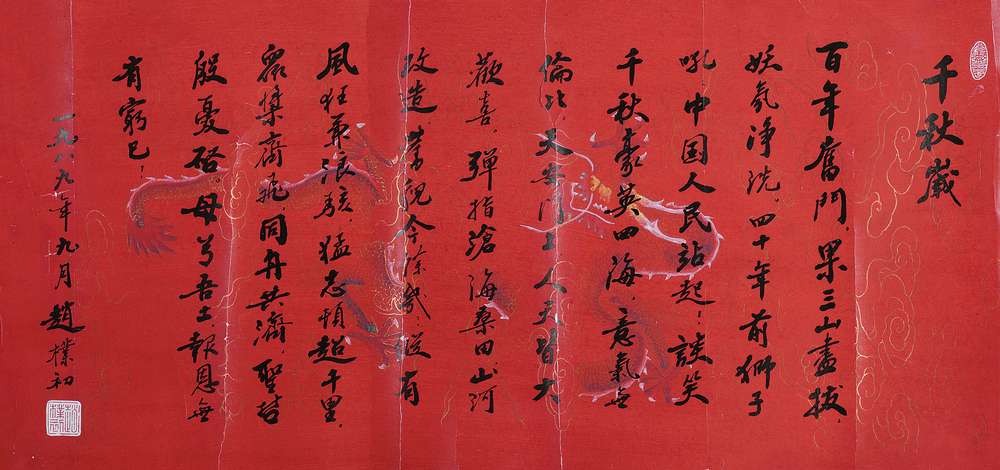 千秋歲
百年奮鬥,果三山盡拔,
妖氛净洗。四十年前獅子
吼,中国人民站起!談笑
千秋豪英四海,意氣無
倫比。天安门上人天皆大
歡喜。彈指滄海桑田,山河
改造,舊貌今餘幾?縱有
風狂兼浪駭,猛志頓超千里。
衆槳齊飛,同舟共濟,聖哲
殷憂啓。母兮吾土,報恩無
有窮已!
一九八九年九月 趙樸初